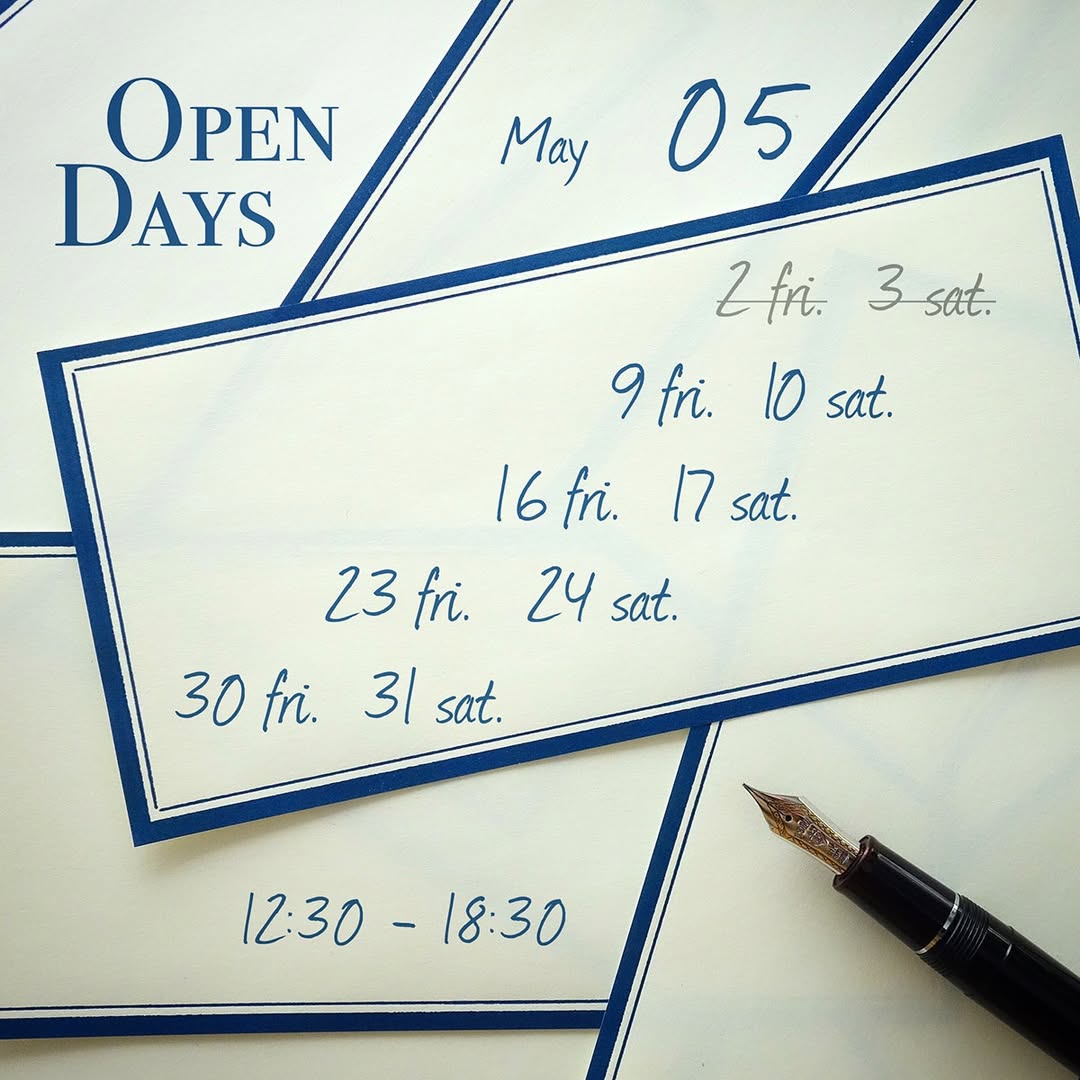 OPEN
DAYS
May 05
2 fri. 3 sat.
9 fri. 10 sat.
16 fri. 17 sat.
23 fri. 24 sat.
30 fri. 31 sat.
12:30 - 18:30